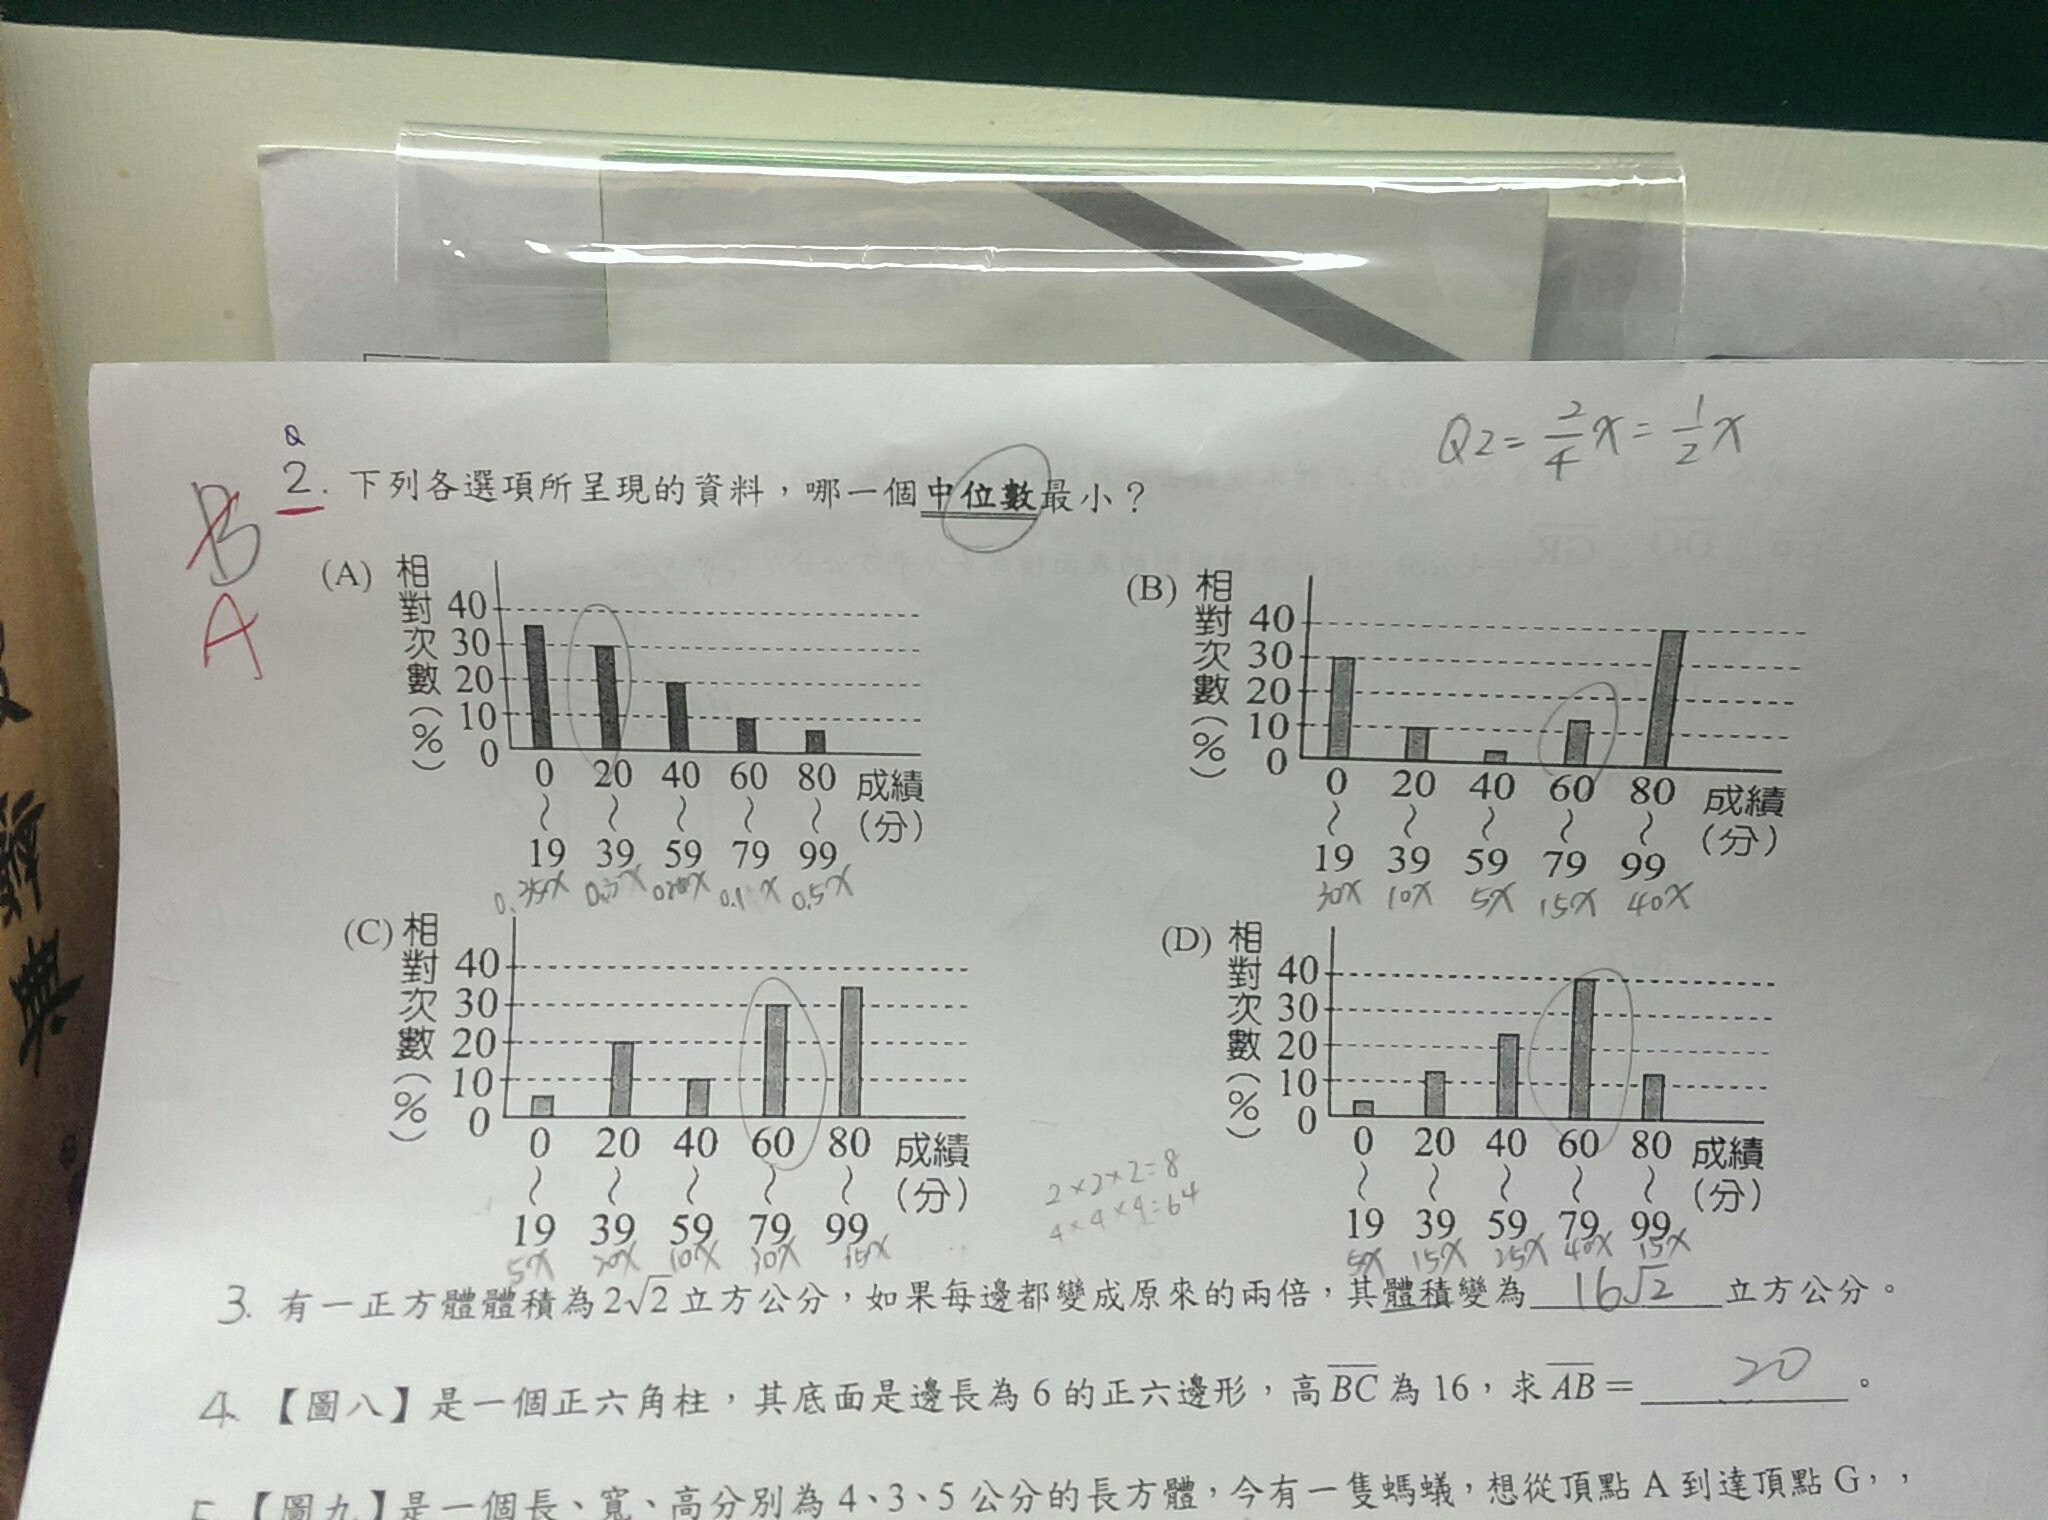 Q2=2/4x=1/2x
Q
2. 下列各選項所呈現的資料，哪一個中位數最小？
B
A
(A) 相對次數(%)
40
30
20
10
0
0 20 40 60 80 成績
～ ～ ～ ～ ～ (分)
19 39 59 79 99
0.35x 0.3x 0.20x 0.1x 0.5x
(B) 相對次數(%)
40
30
20
10
0
0 20 40 60 80 成績
～ ～ ～ ～ ～ (分)
19 39 59 79 99
30x 10x 5x 15x 40x
(C) 相對次數(%)
40
30
20
10
0
0 20 40 60 80 成績
～ ～ ～ ～ ～ (分)
19 39 59 79 99
5x 20x 10x 30x 35x
(D) 相對次數(%)
40
30
20
10
0
0 20 40 60 80 成績
～ ～ ～ ～ ～ (分)
19 39 59 79 99
5x 15x 25x 40x 15x
2×2×2=8
4×4×4=64
3. 有一正方體體積為2√2立方公分，如果每邊都變成原來的兩倍，其體積變為 16√2 立方公分。
4. 【圖八】是一個正六角柱，其底面是邊長為6的正六邊形，高BC為16，求AB= 20 。
5. 【圖九】是一個長、寬、高分別為4、3、5公分的長方體，今有一隻螞蟻，想從頂點A到達頂點G，，